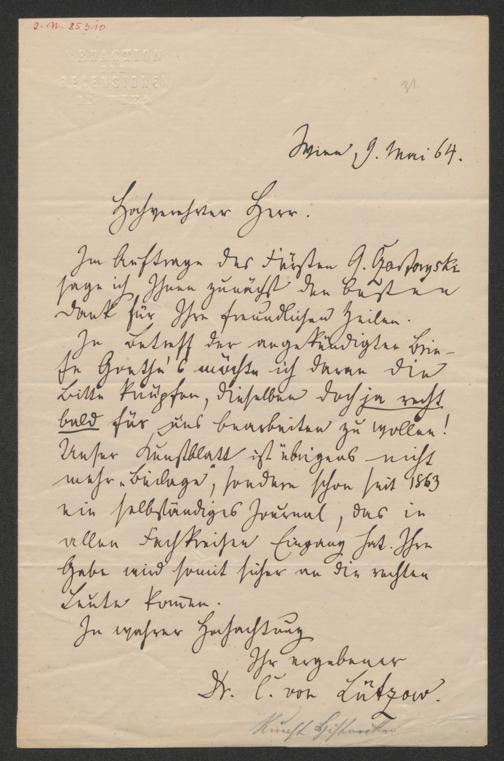 J. N. 85310
REDACTION
DER
RECENSIONEN
IN WIEN
31
Wien, 9. Mai 64.
Hochverehrter Herr.
Im Auftrage des Fürsten G. Czartoryski
sage ich Ihnen zunächst den besten
Dank für Ihre freundlichen Zeilen.
In Betreff der angekündigten Brie-
fe Goethe's möchte ich daran die
Bitte knüpfen, dieselben doch ja recht
bald für uns bearbeiten zu wollen!
Unser Kunstblatt ist übrigens nicht
mehr „Beilage“, sondern schon seit 1863
ein selbständiges Journal, das in
allen Fachkreisen Eingang hat. Ihre
Gabe wird somit sicher an die rechten
Leute kom̄en.
In wahrer Hochachtung
Ihr ergebener
Dr. C. von Lützow.
Kunsthistoriker